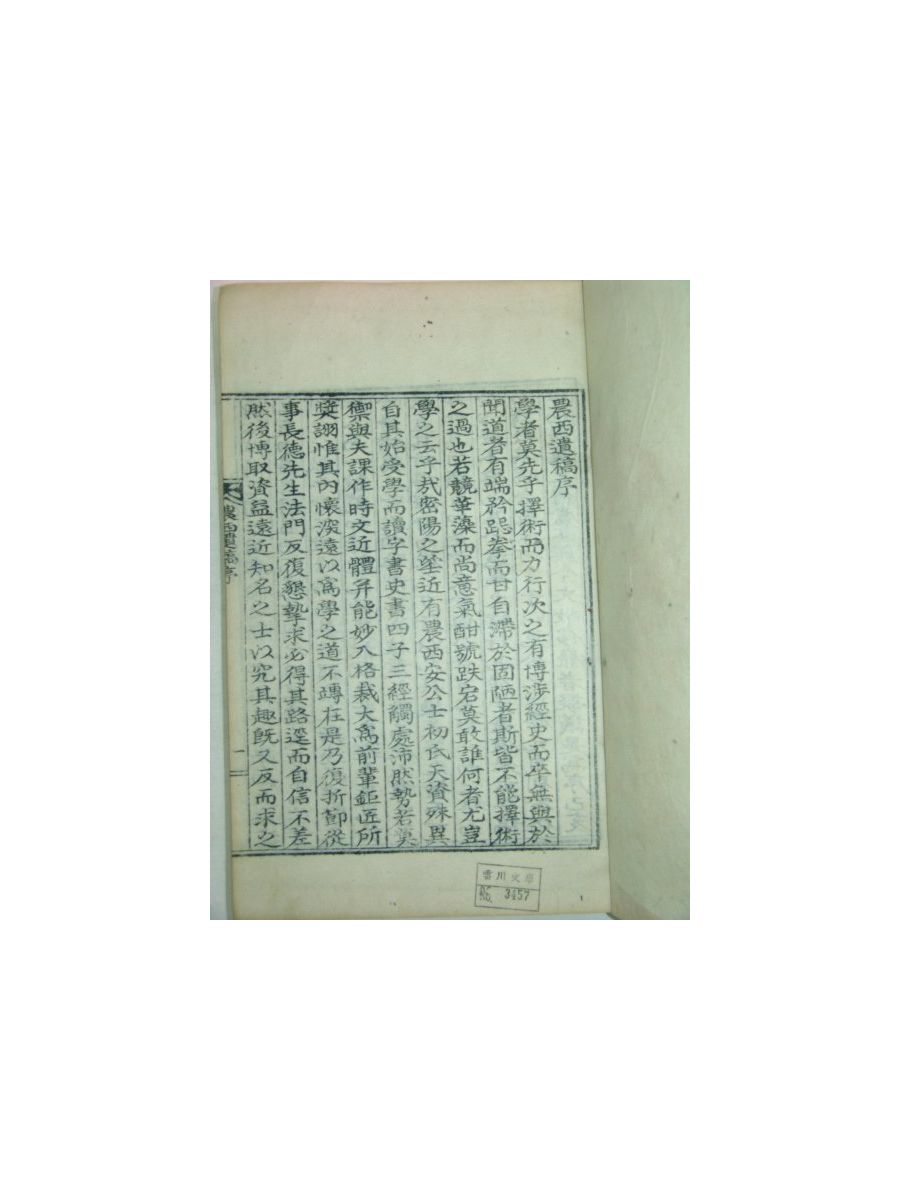 農西遺稿序
學者莫先乎擇術而力行次之有博涉經史而卒無與於
聞道者有端矜跽拳而甘自滯於固陋者斯皆不能擇術
之過也若競華藻而尚意氣酣號跌宕莫敢誰何者尤豈
學之云乎哉密陽之莝近有農西安公士初氏天資殊異
自其始受學而讀字書史書四子三經觸處沛然勢若莫
禦與夫課作時文近體幷能妙入格裁大爲前輩鉅匠所
奬詡惟其內懷深遠以爲學之道不專在是乃復折節從
事長德先生法門反復懇摯求必得其路逕而自信不差
然後博取資益遠近知名之士以究其趣旣又反而求之
農西遺稿序
一
雲川文庫
No. 3457
1